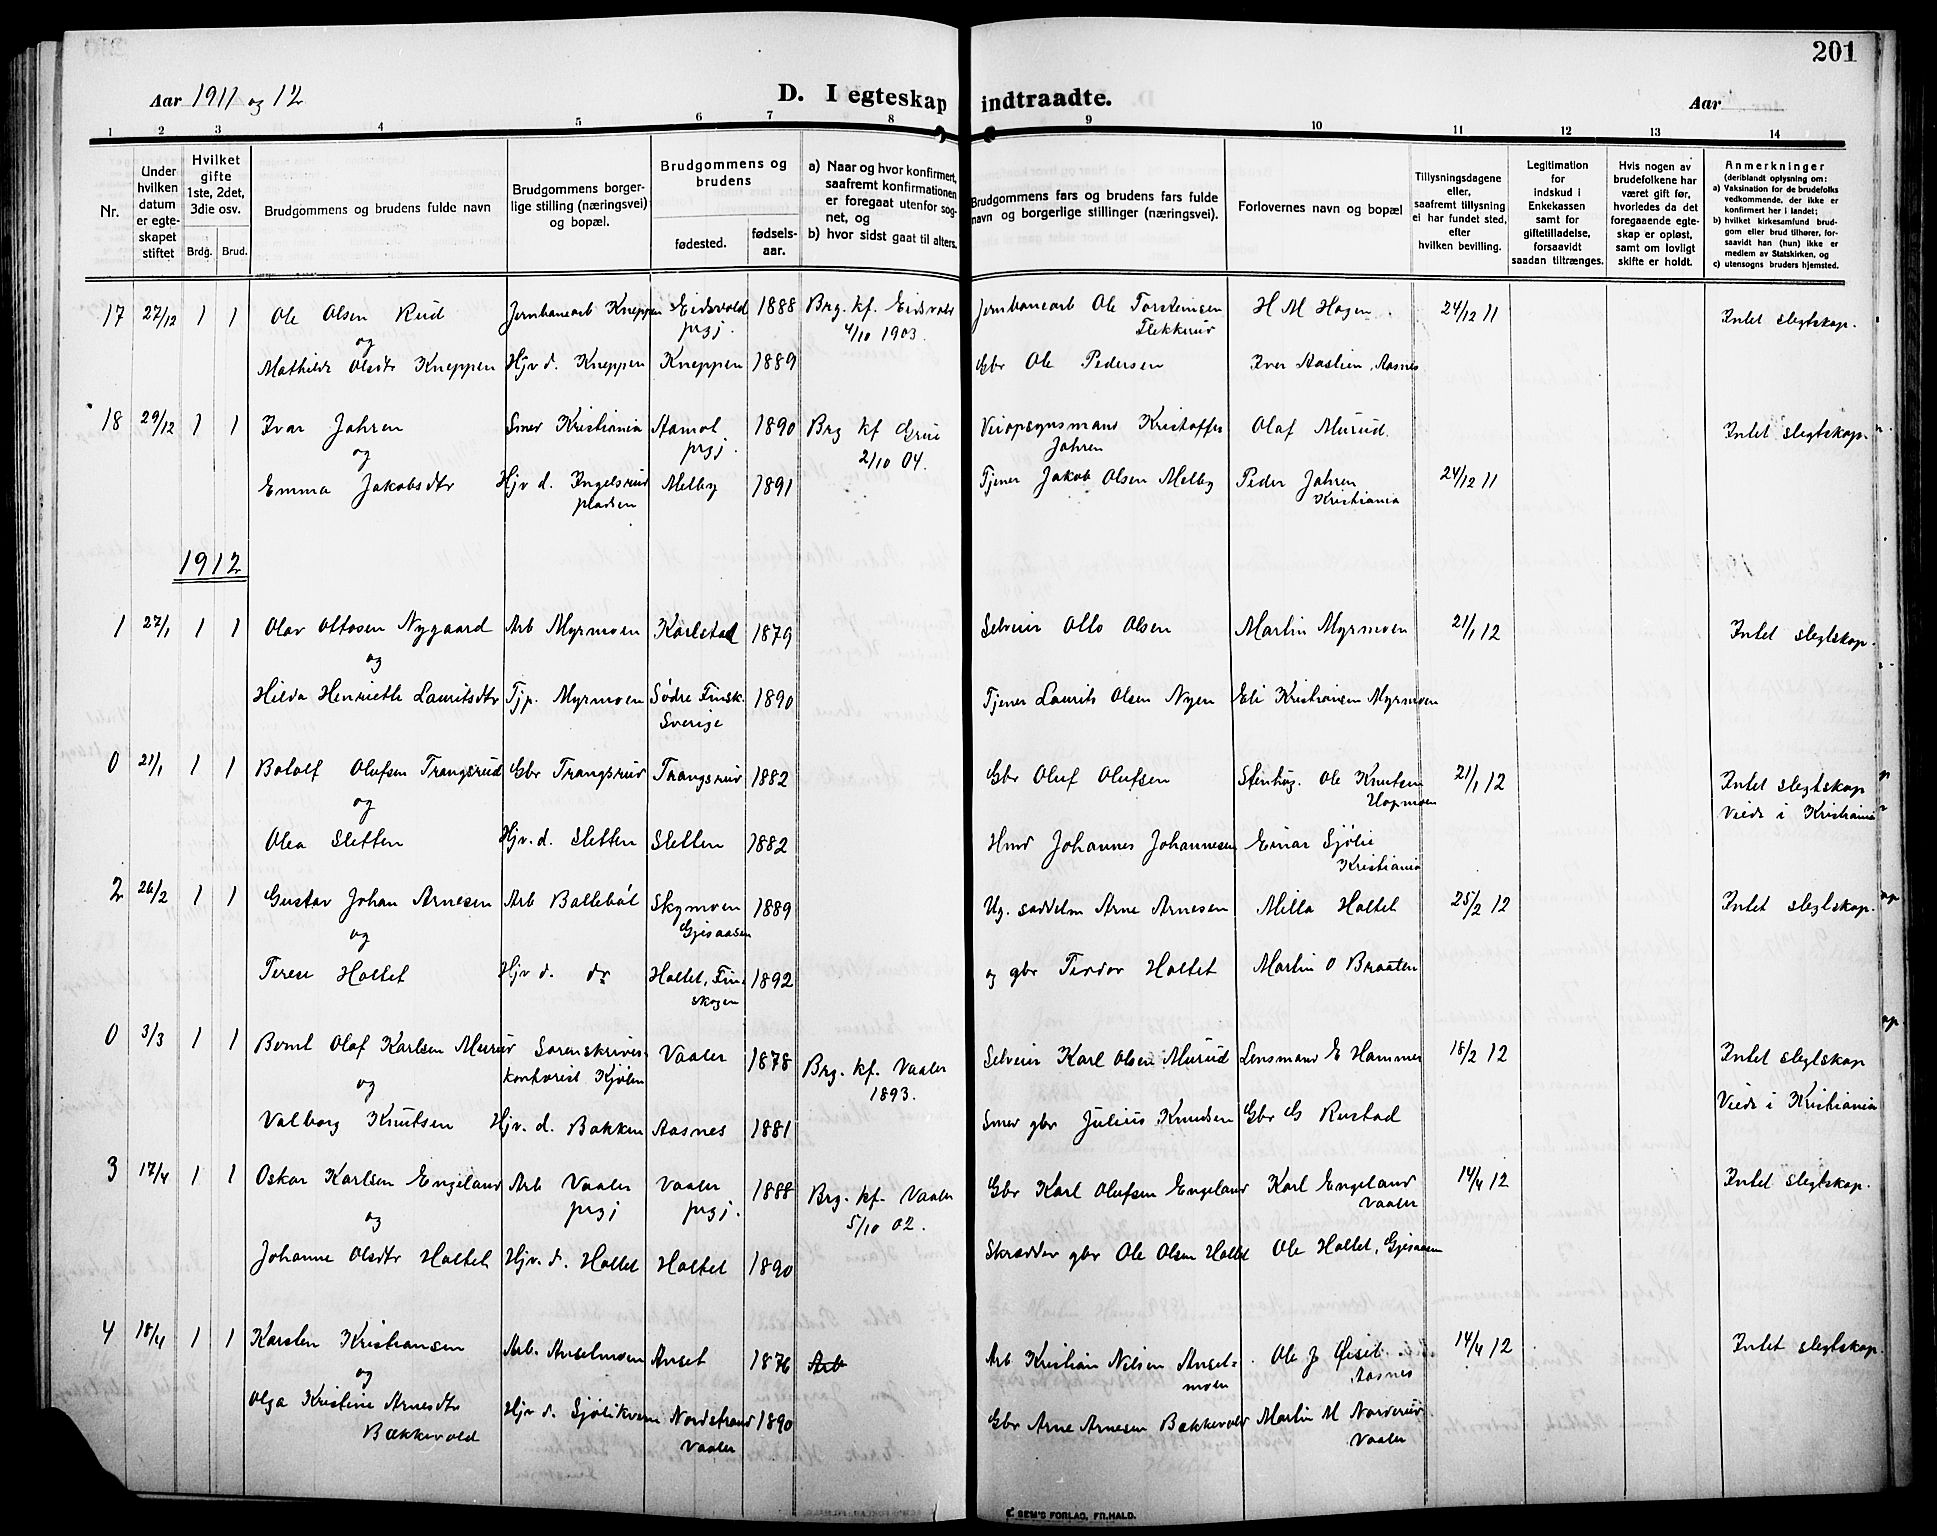 201
Aar 1911 og 12
D. I egteskap indtraadte.
Aar
1 2 3 4 5 6 7 8 9 10 11 12 13 14
Nr.
Under hvilken datum er egteskapet stiftet
Hvilket gifte 1ste, 2det, 3die osv.
Brdg. Brud.
Brudgommens og brudens fulde navn
Brudgommens borgerlige stilling (næringsvei) og bopæl.
Brudgommens og brudens
fødested.
fødselsaar.
a) Naar og hvor konfirmert, saafremt konfirmationen er foregaat utenfor sognet, og
b) hvor sidst gaat til alters.
Brudgommens fars og brudens fars fulde navn og borgerlige stillinger (næringsvei).
Forlovernes navn og bopæl
Tillysningsdagene eller, saafremt tillysning ei har fundet sted, efter hvilken bevilling.
Legitimation for indskud i Enkekassen samt for giftetilladelse, forsaavidt saadan tiltrænges.
Hvis nogen av brudefolkene har været gift før, hvorledes da det foregaaende egteskap er opløst, samt om lovligt skifte er holdt.
Anmerkninger (deriblandt oplysning om:
a) Vaksination for de brudefolks vedkommende, der ikke er konfirmert her i landet;
b) hvilket kirkesamfund brudgom eller brud tilhører, forsaavidt han (hun) ikke er medlem av Statskirken, og
c) utensogns bruders hjemsted.
17 27/12 1 1 Ole Olsen Rud Jernbanearb Kneppen Eidsvold prgj. 1888 Brg. kf. Eidsvold 4/10 1903. Jernbanearb Ole Torsteinsen Flekkerud H M Hagen 24/12 11 Intet slegtskap.
og
Mathilde Olsdtr Kneppen Hjv d. Kneppen Kneppen 1889 Gbr Ole Pedersen Iver Aaslien, Aasnes
18 29/12 1 1 Ivar Jahren Smed Kristiania Aamot prgj. 1890 Brg kf Grue 2/10 04. Veiopsynsmand Kristoffer Jahren Olaf Murud. Intet slegtskap.
og
Emma Jakobsdtr Hjv d. Ingelsrud pladsen Melby 1891 Tjener Jakob Olsen Melby Peder Jahren Kristiania 24/12 11
1912
1 27/1 1 1 Olav Ottosen Nygaard Arb Myrmoen Karlstad 1879 Selveier Otto Olsen Martin Myrmoen 21/1 12 Intet slegtskap.
og
Hilda Henriette Lauritsdtr Tjp. Myrmoen Södre Finsk. Sverige 1890 Tjener Laurits Olsen Nyen Eli Kristiansen Myrmoen
0 21/1 1 1 Botolf Olufsen Trangsrud Gbr Trangsrud Trangsrud 1882 Gbr Oluf Olufsen Stenhug. Ole Knutsen Hopmoen 21/1 12 Intet slegtskap Viede i Kristiania
og
Olea Sletten Hjv. d. Sletten Sletten 1882 Hmd Johannes Johannesen Einar Sjölie Kristiania
2 26/2 1 1 Gustav Johan Arnesen Arb Balleböl Skymoen Gjesaasen 1889 Ug. saddelm Arne Arnesen Milla Haltet 25/2 12 Intet slegtskap.
og
Terese Haltet Hjv d. do Haltet, Finskogen 1892 og gbr Teodor Haltet Martin O Braaten
0 3/3 1 1 Bernt Olaf Karlsen Murud Sorenskriverkontorist Kjölen Vaaler 1878 Brg. kf. Vaaler 1893. Selveier Karl Olsen Murud Lensmand E Hammer 18/2 12 Intet slegtskap Viede i Kristiania
og
Valborg Knutsen Hjv. d. Bakken Aasnes 1881 Smed gbr Julius Knudsen Gbr G Rustad
3 17/4 1 1 Oskar Karlsen Engeland Arb Vaaler prgj Vaaler prgj. 1888 Brg. kf. Vaaler 5/10 02. Gbr Karl Olufsen Engeland Karl Engeland Vaaler 14/4 12 Intet slegtskap.
og
Johanne Olsdtr Haltet Hjv. d. Haltet Haltet 1890 Skrædder gbr Ole Olsen Haltet Ole Haltet, Gjesaasen
4 18/4 1 1 Karsten Kristiansen Arb. Anselmoen Anset 1876 Arb Arb Kristian Nilsen Anselmoen Ole J Öiset Aasnes 14/4 12 Intet slegtskap.
og
Olga Kristine Arnesdtr Bækkevold Hjv d. Sjölikvern Nordstrand Vaaler 1890 Gbr Arne Arnesen Bækkevold Martin M Norderud Vaaler
SEM'S FORLAG, FR.HALD.